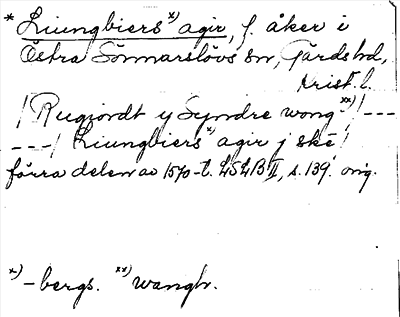 * Liungbiers x) agir, f. åker i
Östra Sönnarslövs sn, Gärds hd,
Krist. l.
/ Rugiordt y Syndre wong xx) / ---
---/ Liungbiers x) agir j ske /
förra delen av 1570-t. LSLB II, s. 139. orig.
x) -bergs. xx) wangh.